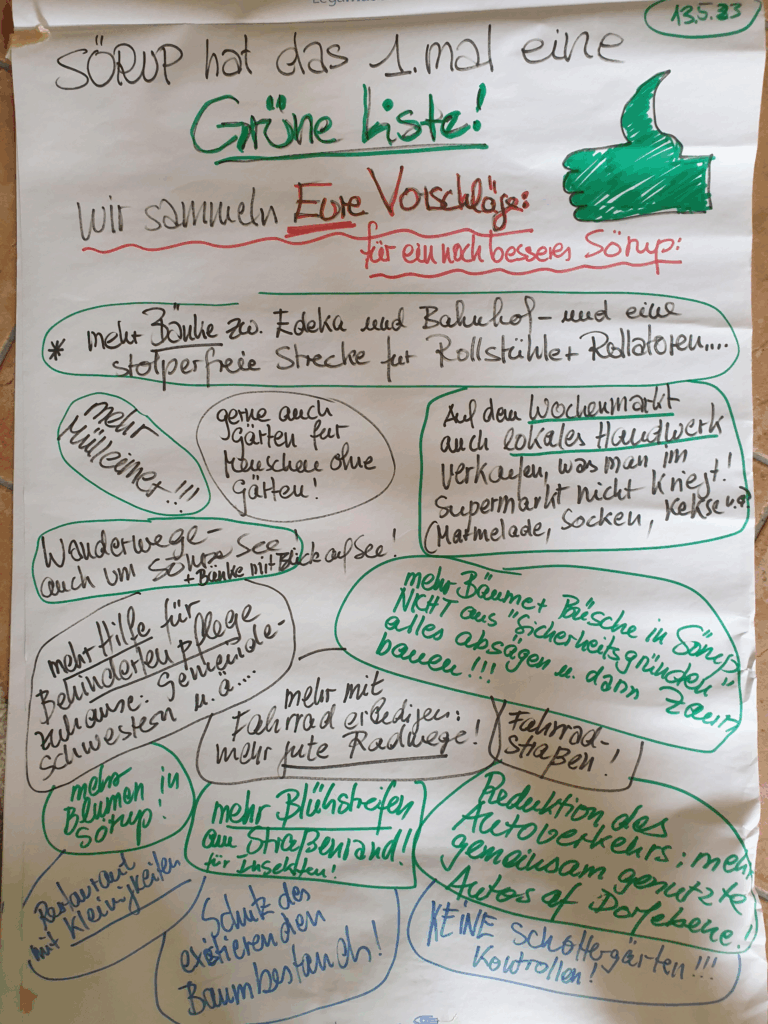 13.5.23
SÖRUP hat das 1. mal eine
Grüne Liste!
wir sammeln Eure Vorschläge:
für ein noch besseres Sörup:
* mehr Bänke zw. Edeka und Bahnhof - und eine
stolperfreie Strecke für Rollstühle + Rollatoren....
mehr
Mülleimer!!!
gerne auch
Gärten für
Menschen ohne
Gärten!
Auf dem Wochenmarkt
auch lokales Handwerk
verkaufen, was man im
Supermarkt nicht kriegt!
(Marmelade, Socken, Kekse u.a.
Wanderwege-
auch um Söruper See!
+ Bänke mit Blick auf See!
mehr Bäume + Büsche in Sörup
NICHT aus "Sicherheitsgründen"
alles absägen u. dann Zaun
bauen!!!
mehr Hilfe für
Behindertenpflege
zuhause: Gemeinde-
schwestern u.ä....
mehr mit
Fahrrad erledigen:
mehr gute Radwege!
Fahrrad-
straßen!
mehr
Blumen in
Sörup!
mehr Blühstreifen
am Straßenrand!
für Insekten!
Reduktion des
Autoverkehrs: mehr
gemeinsam genutzte
Autos af Dorfebene!
Restaurant
mit Kleinigkeiten
Schutz des
existierenden
Baumbestands!
KEINE Schottergärten!!!
Kontrollen!